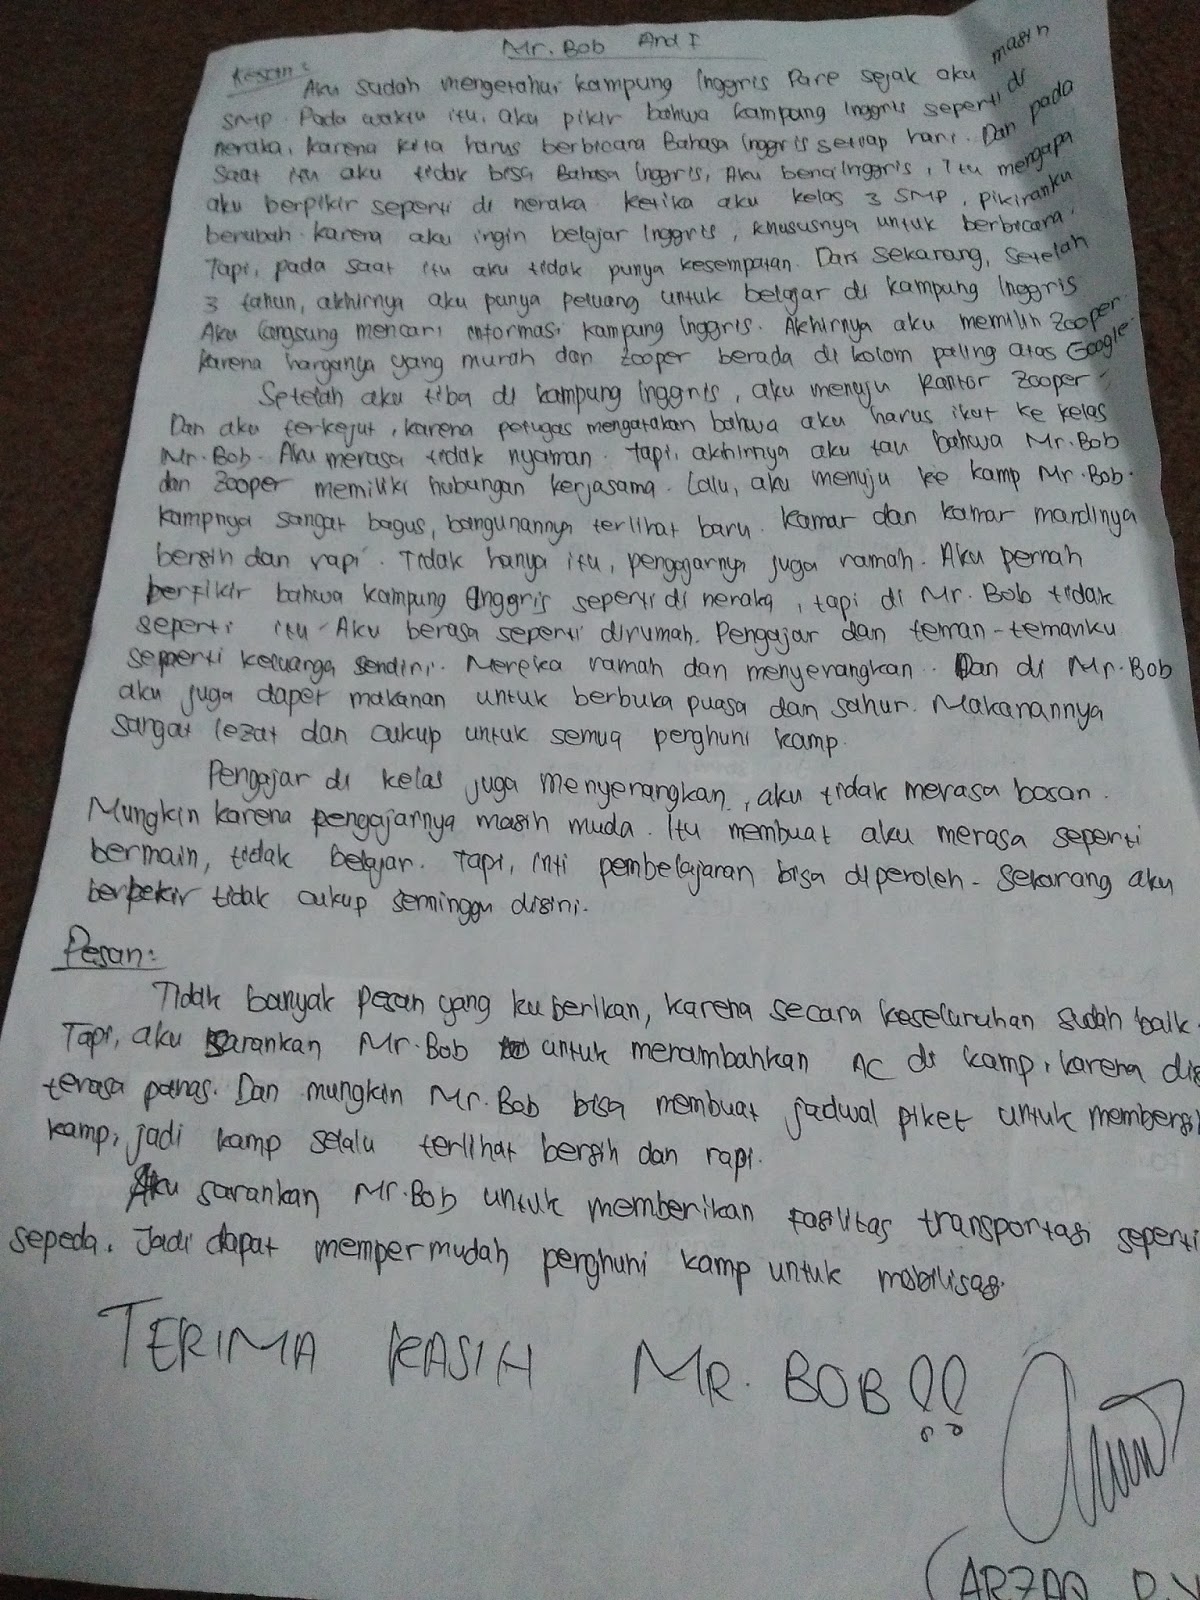 Mr. Bob And I
Kesan:
Aku sudah mengetahui kampung Inggris Pare sejak aku masih
SMP. Pada waktu itu, aku pikir bahwa kampung Inggris seperti di
neraka, karena kita harus berbicara Bahasa Inggris setiap hari. Dan pada
saat itu aku tidak bisa Bahasa Inggris, Aku benci Inggris, Itu mengapa
aku berpikir seperti di neraka. Ketika aku kelas 3 SMP, pikiranku
berubah karena aku ingin belajar Inggris, khususnya untuk berbicara.
Tapi, pada saat itu aku tidak punya kesempatan. Dari sekarang, setelah
3 tahun, akhirnya aku punya peluang untuk belajar di kampung Inggris
Aku langsung mencari informasi kampung Inggris. Akhirnya aku memilih Zooper.
karena harganya yang murah dan Zooper berada di kolom paling atas Google.
Setelah aku tiba di kampung Inggris, aku menuju kantor Zooper.
Dan aku terkejut, karena petugas mengatakan bahwa aku harus ikut ke kelas
Mr. Bob. Aku merasa tidak nyaman. Tapi, akhirnya aku tau bahwa Mr. Bob
dan Zooper memiliki hubungan kerjasama. Lalu, aku menuju ke kamp Mr. Bob.
kampnya sangat bagus, bangunannya terlihat baru. Kamar dan kamar mandinya
bersih dan rapi. Tidak hanya itu, pengajarnya juga ramah. Aku pernah
berfikir bahwa kampung Inggris seperti di neraka, tapi di Mr. Bob tidak
seperti itu. Aku berasa seperti dirumah. Pengajar dan teman-temanku
seperti keluarga sendiri. Mereka ramah dan menyenangkan. Dan di Mr. Bob
aku juga dapet makanan untuk berbuka puasa dan sahur. Makanannya
sangat lezat dan cukup untuk semua penghuni kamp.
Pengajar di kelas juga menyenangkan, aku tidak merasa bosan.
Mungkin karena pengajarnya masih muda. Itu membuat aku merasa seperti
bermain, tidak belajar. Tapi, inti pembelajaran bisa diperoleh. Sekarang aku
berpikir tidak cukup seminggu disini.
Pesan:
Tidak banyak pesan yang ku berikan, karena secara keseluruhan sudah baik.
Tapi, aku sarankan Mr. Bob untuk menambahkan AC di kamp, karena dis
terasa panas. Dan mungkin Mr. Bob bisa membuat jadwal piket untuk membersi
kamp, jadi kamp selalu terlihat bersih dan rapi.
Aku sarankan Mr. Bob untuk memberikan fasilitas transportasi seperti
sepeda. Jadi dapat mempermudah penghuni kamp untuk mobilisasi.
TERIMA KASIH MR. BOB!!
(ARZAQ R.Y